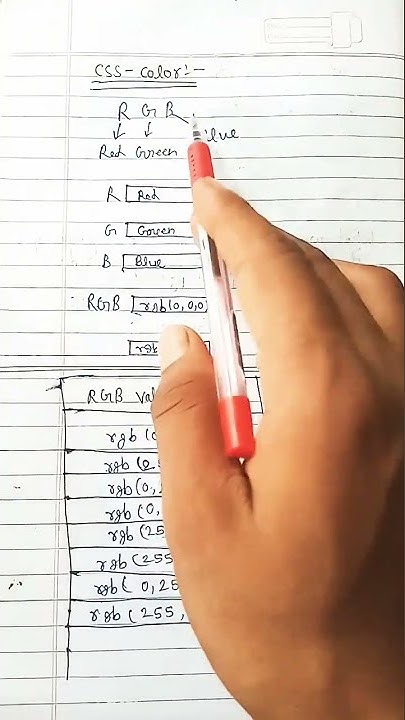 CSS-Color:-
R G B
Red Green
R Red
G Green
B Blue
RGB rgb(0,0,0
RGB
rgb (
rgb (0
rgb(0,
rgb (0,
rgb (25
rgb (255
rgb( 0,25
rgb (255,